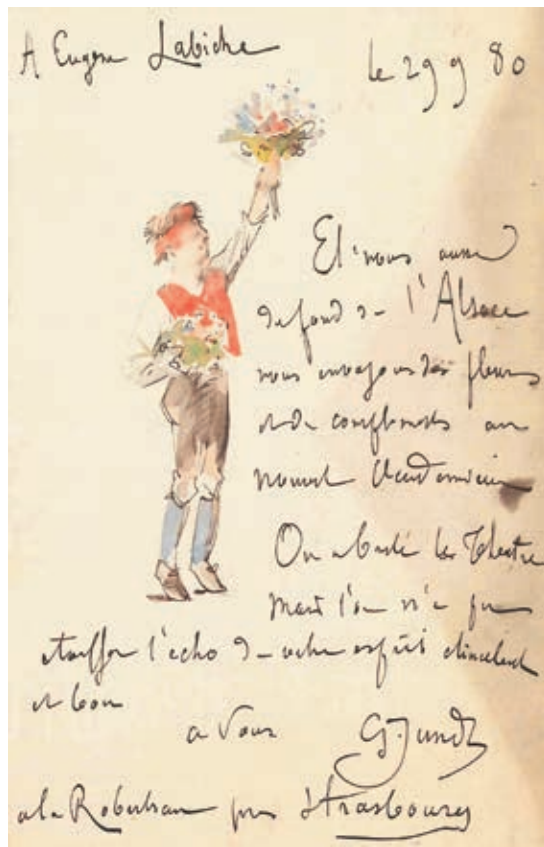 A Eugene Labiche
le 29 9 80
Et nous aussi
du fond de l'Alsace
nous envoyons des fleurs
et des compliments au
nouvel Academicien
On a brulé les Théatre
mais l'on n'a pu
etouffer l'echo de votre esprit étincelant
et bon
a Vous G. Jundt
a la Robertsau pres Strasbourg